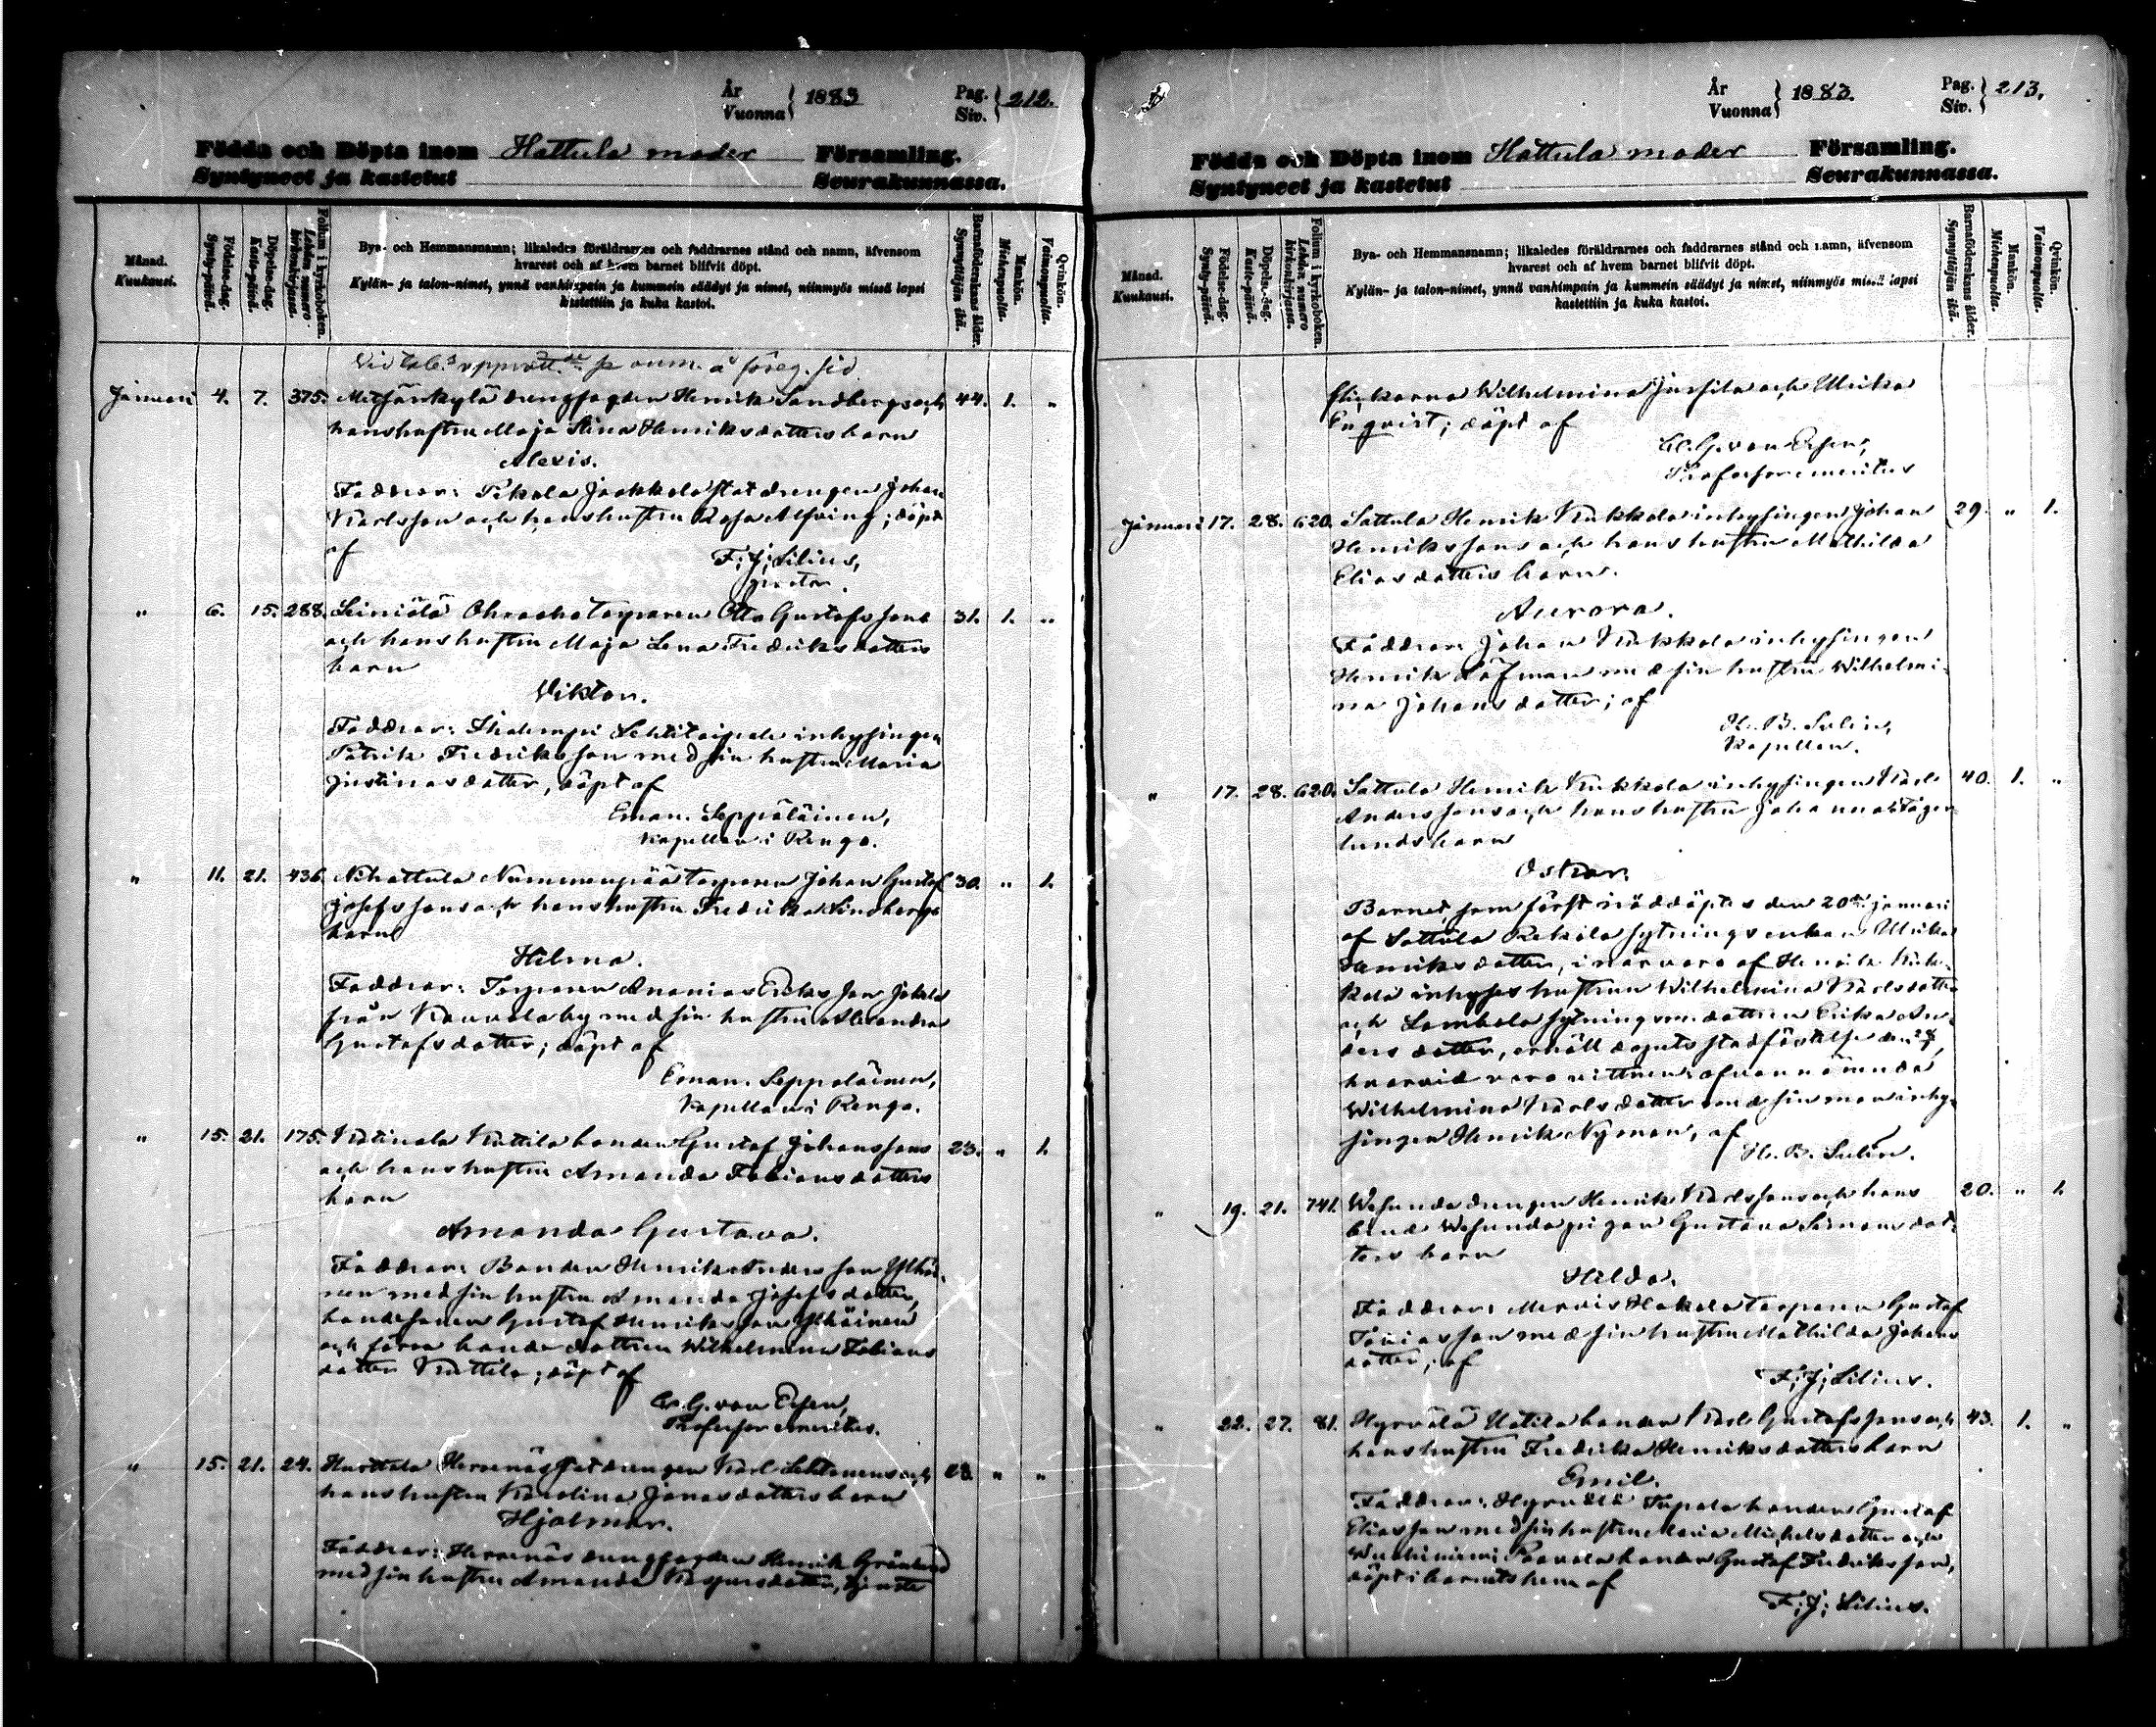 År
Vuonna } 1883
Pag.
Siv. } 212.
Födda och Döpta inom Hattula moder Församling.
Syntyneet ja kastetut Seurakunnassa.
Månad.
Kuukausi.
Födelse-dag.
Synty-päivä.
Döpelse-dag.
Kaste-päivä.
Folium i kyrkoboken.
Lehden numero kirkonkirjassa.
Bya- och Hemmansnamn; likaledes föräldrarnes och faddrarnes stånd och namn, äfvensom
hvarest och af hvem barnet blifvit döpt.
Kylän- ja talon-nimet, ynnä vanhimpain ja kummein säädyt ja nimet, niinmyös missä lapsi
kastettiin ja kuka kastoi.
Barnaföderskans ålder.
Synnyttäjän ikä.
Mankön.
Miehenpuolta.
Qvinkön.
Vaimonpuolta.
å föreg. sid
Januari 4. 7. 375. drengfogden Henrik Sandbergs och 44. 1. "
hans hustru Maja Stina Henriksdotters barn
Alexis.
Faddrar: Pekola Jaakkola statdrengen Johan
Karlsson och hans hustru Alfving; döpt
af F. J. Lilius,
" 6. 15. 288. Leiniälä torparen Otto Gustafssons 31. 1. "
och hans hustru Maja Lena Fredriksdotters
barn
Viktor.
Faddrar: inhysingen
Patrik Fredriksson med sin hustru Maria
Justinasdotter, döpt af
Eman. Seppäläinen,
Kapellan i Rengo.
" 11. 21. 436. Nihattula Nummenpää torparen Johan Gustaf 30. " 1.
Josefssons och hans hustru Fredrika Lindbergs
barn
Hilma.
Faddrar: Torparen Ananias Eriksson Jokela
från by med sin hustru Alexandra
Gustafsdotter; döpt af
Eman. Seppäläinen,
Kapellan i Rengo.
" 15. 21. 175. Katinala Kuttila bonden Gustaf Johanssons 23. " 1.
och hans hustru Amanda Fabiansdotters
barn
Amanda Gustava.
Faddrar: Bonden Henrik Andersson
nen med sin hustru Amanda Josefsdotter,
bondesonen Gustaf Henriksson
och förra bondedottren Wilhelmina Fabians
dotter Kuttila; döpt af
C. G. von Essen,
Professor emeritus.
" 15. 21. 24. Hurttala Herrenäs statdrengen Karl Lehtonens och " "
hans hustru Karolina Jonasdotters barn
Hjalmar.
Faddrar: Herrenäs drengfogden Henrik Grönlund
med sin hustru Amanda Kaspersdotter, tjenste
År
Vuonna } 1883.
Pag.
Siv. } 213.
Födda och Döpta inom Hattula moder Församling.
Syntyneet ja kastetut Seurakunnassa.
Månad.
Kuukausi.
Födelse-dag.
Synty-päivä.
Döpelse-dag.
Kaste-päivä.
Folium i kyrkoboken.
Lehden numero kirkonkirjassa.
Bya- och Hemmansnamn; likaledes föräldrarnes och faddrarnes stånd och namn, äfvensom
hvarest och af hvem barnet blifvit döpt.
Kylän- ja talon-nimet, ynnä vanhimpain ja kummein säädyt ja nimet, niinmyös missä lapsi
kastettiin ja kuka kastoi.
Barnaföderskans ålder.
Synnyttäjän ikä.
Mankön.
Miehenpuolta.
Qvinkön.
Vaimonpuolta.
flickorna Wilhelmina Jussila och Ulrika
Enqvist; döpt af
C. G. von Essen,
Professor emeritus
Januari 17. 28. 620. Sattula Henrik Kukkola inhysingen Johan 29. " 1.
Henrikssons och hans hustru Mathilda
Eliasdotters barn.
Aurora.
Faddrar: Johan Kukkola inhysingen
Henrik Löfman med sin hustru Wilhelmi-
na Johansdotter; af
H. B. Sulin,
Kapellan.
" 17. 28. 620. Sattula Henrik Kukkola inhysingen Karl 40. 1. "
Anderssons och hans hustru Johanna Fager-
lunds barn
Oskar.
Barnet, som först nöddöptes den 20de januari
af Sattula Rekola sytningsenkan Ulrika
Henriksdotter, i närvaro af Henrik Kuk-
kola inhyses hustrun Wilhelmina Karlsdotter
och Lambola sytningsmedottren Erika An-
ders dotter, erhöll dopets stadfästelse den 28/1,
hvarvid voro vittnen: ofvannämnda
Wilhelmina Karlsdotter med sin man inhy-
singen Henrik Nyman, af
H. B. Sulin.
" 19. 21. 741. Wesunda drengen Henrik Karlssons och hans 20. " 1.
brud Wesunda pigan Gustava Simonsdot-
ters barn
Hilda.
Faddrar: Mervis Hakala torparen Gustaf
Tobiasson med sin hustru Mathilda Johans
dotter; af
F. J. Lilius.
" 22. 27. 81. Hyrvälä Uotila bonden Karl Gustafssons och 43. 1. "
hans hustru Fredrika Henriksdotters barn
Emil.
Faddrar: Hyrvälä Tupala bonden Gustaf
Eliasson med sin hustru Maria Michelsdotter och
Wuohiniemi Paavola bonden Gustaf Fredriksson,
döpt i barnets hem af
F. J. Lilius.